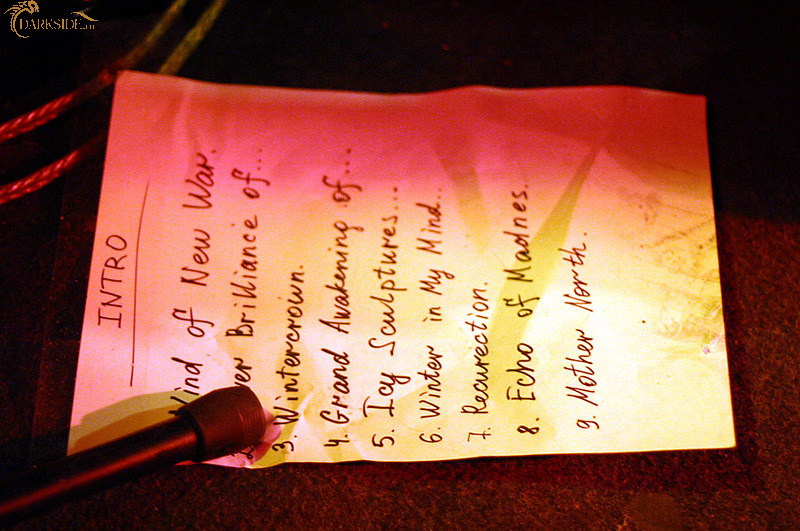 DARKSIDE.ru
INTRO
Wind of New War.
Brilliance of...
3. Wintercrown.
4. Grand Awakening of...
5. Icy Sculptures...
6. Winter in My Mind...
7. Recurection.
8. Echo of Madnes...
9. Mother North.